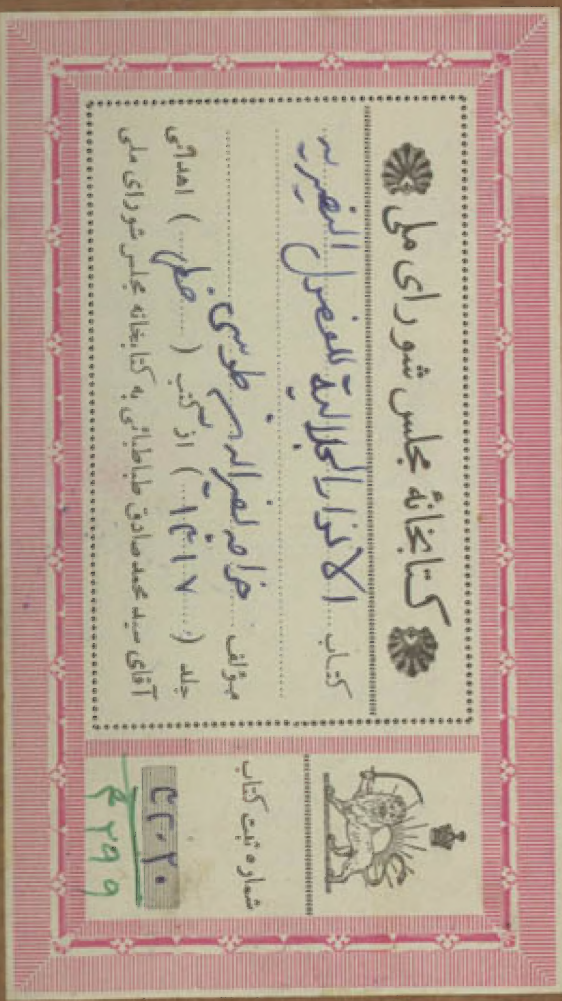 کتابخانهٔ مجلس شورای ملی
کتاب الانوار الجلالیة للفصول النصیریه
مؤلف خواجه نصیرالدین طوسی
جلد (۱۴۱۷) از کتب (خطی) اهدائی
آقای سید محمد صادق طباطبائی به کتابخانه مجلس شورای ملی
شماره ثبت کتاب
۴۲۹۹